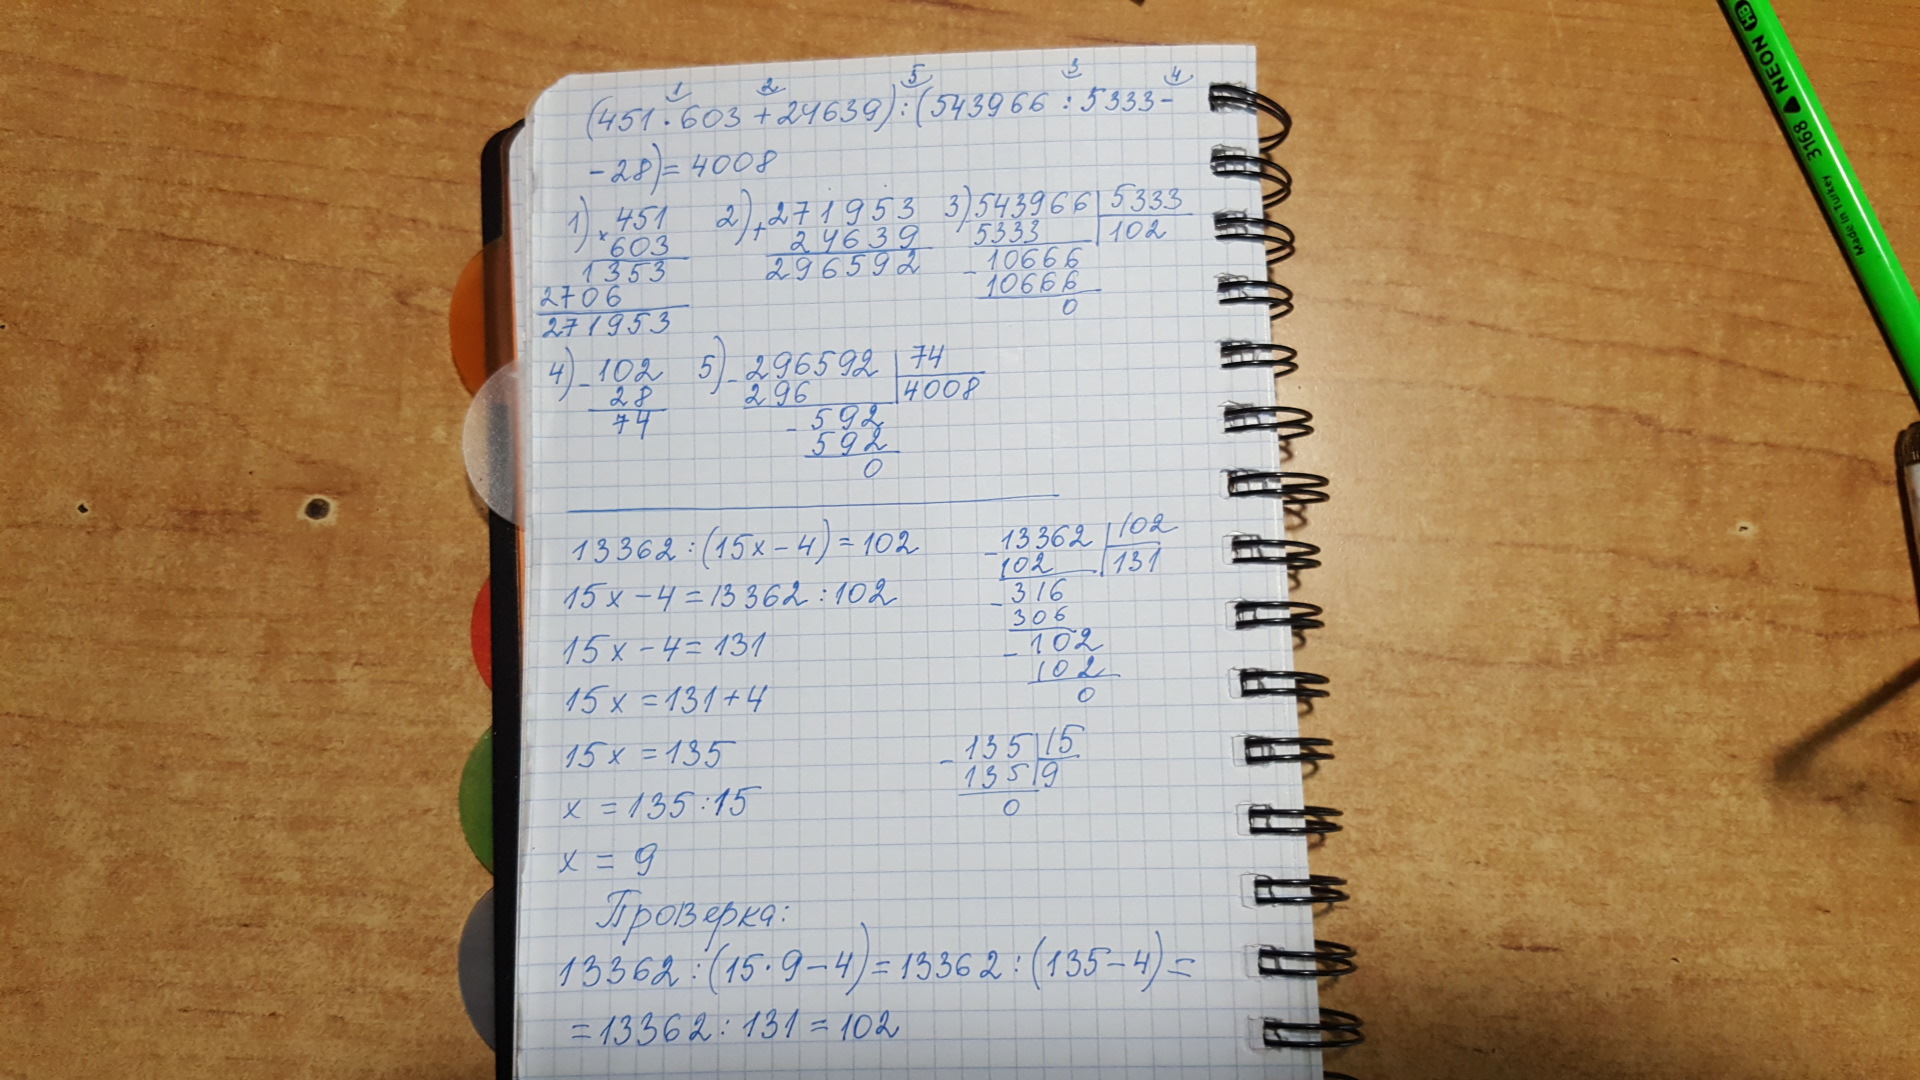 1 2 5 3 4
(451·603+24639):(543966:5333-
-28)=4008
1) ×451 2) +271953 3) 543966 | 5333
603 24639 5333 | 102
1353 296592 -10666
2706 10666
271953 0
4) -102 5) -296592 | 74
28 296 | 4008
74 -592
592
0
13362:(15x-4)=102 -13362 | 102
102 | 131
15x-4=13362:102 -316
306
15x-4=131 -102
102
15x=131+4 0
15x=135 -135 | 15
135 | 9
x=135:15 0
x=9
Проверка:
13362:(15·9-4)=13362:(135-4)=
=13362:131=102
HB NEON 3168
Made in Turkey